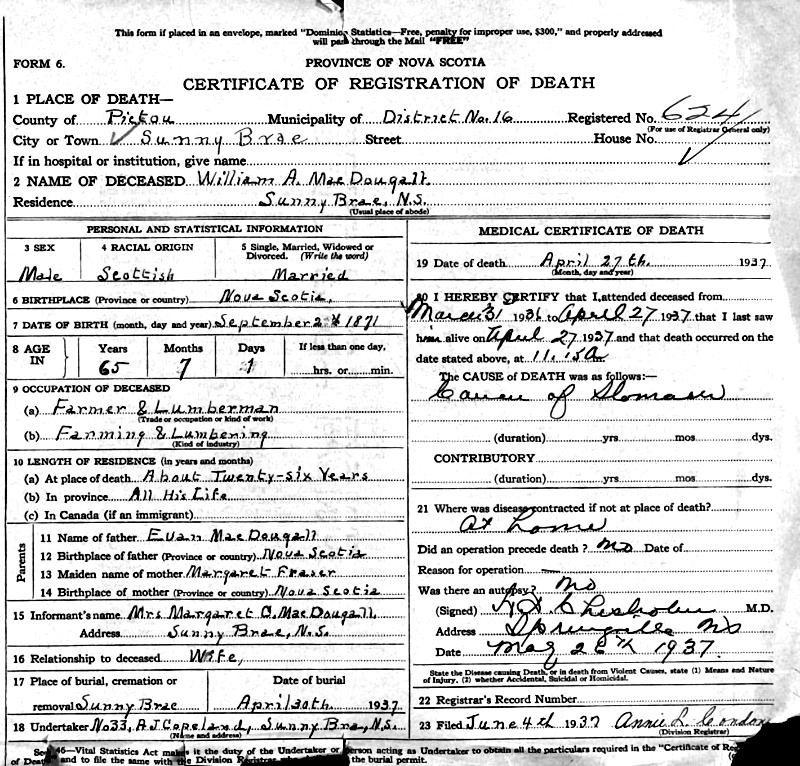 This form if placed in an envelope, marked "Dominion Statistics—Free, penalty for improper use, $300," and properly addressed
will pass through the Mail "FREE"
FORM 6. PROVINCE OF NOVA SCOTIA
CERTIFICATE OF REGISTRATION OF DEATH
1 PLACE OF DEATH—
County of Pictou Municipality of District No. 16 Registered No. 624
(For use of Registrar General only)
City or Town Sunny Brae Street House No.
If in hospital or institution, give name
2 NAME OF DECEASED William A. MacDougall.
Residence Sunny Brae, N.S.
(Usual place of abode)
PERSONAL AND STATISTICAL INFORMATION
3 SEX 4 RACIAL ORIGIN 5 Single, Married, Widowed or Divorced. (Write the word)
Male Scottish Married
6 BIRTHPLACE (Province or country) Nova Scotia,
7 DATE OF BIRTH (month, day and year) September 1871
8 AGE IN Years Months Days If less than one day,
65 7 1 hrs. or min.
9 OCCUPATION OF DECEASED
(a) Farmer & Lumberman
(Trade or occupation or kind of work)
(b) Farming & Lumbering
(Kind of industry)
10 LENGTH OF RESIDENCE (in years and months)
(a) At place of death About Twenty-six Years
(b) In province All His Life
(c) In Canada (if an immigrant)
Parents
11 Name of father Evan MacDougall
12 Birthplace of father (Province or country) Nova Scotia
13 Maiden name of mother Margaret Fraser
14 Birthplace of mother (Province or country) Nova Scotia
15 Informant's name Mrs Margaret C. MacDougall,
Address Sunny Brae, N.S.
16 Relationship to deceased Wife,
17 Place of burial, cremation or Date of burial
removal Sunny Brae April 30th. 1937
18 Undertaker No 33, A J Copeland, Sunny Brae, N.S.
(Name and address)
MEDICAL CERTIFICATE OF DEATH
19 Date of death April 27th. 1937
(Month, day and year)
20 I HEREBY CERTIFY that I attended deceased from
March 31 1936 to April 27 1937 that I last saw
him alive on April 27 1937 and that death occurred on the
date stated above, at 11.15a
The CAUSE OF DEATH was as follows:—
Cancer of Stomach
(duration) yrs mos dys.
CONTRIBUTORY
(duration) yrs. mos dys.
21 Where was disease contracted if not at place of death?
At home
Did an operation precede death? No Date of
Reason for operation —
Was there an autopsy? No
(Signed) Chisholm M.D.
Address Springville NS
Date May 28th 1937.
State the Disease causing Death, or in death from Violent Causes, state (1) Means and Nature
of Injury. (2) whether Accidental, Suicidal or Homicidal.
22 Registrar's Record Number
23 Filed June 4th 1937 Annie L. Condon
(Division Registrar)
46—Vital Statistics Act makes it the duty of the Undertaker or person acting as Undertaker to obtain all the particulars required in the "Certificate of
of Death" and to file the same with the Division Registrar the burial permit.